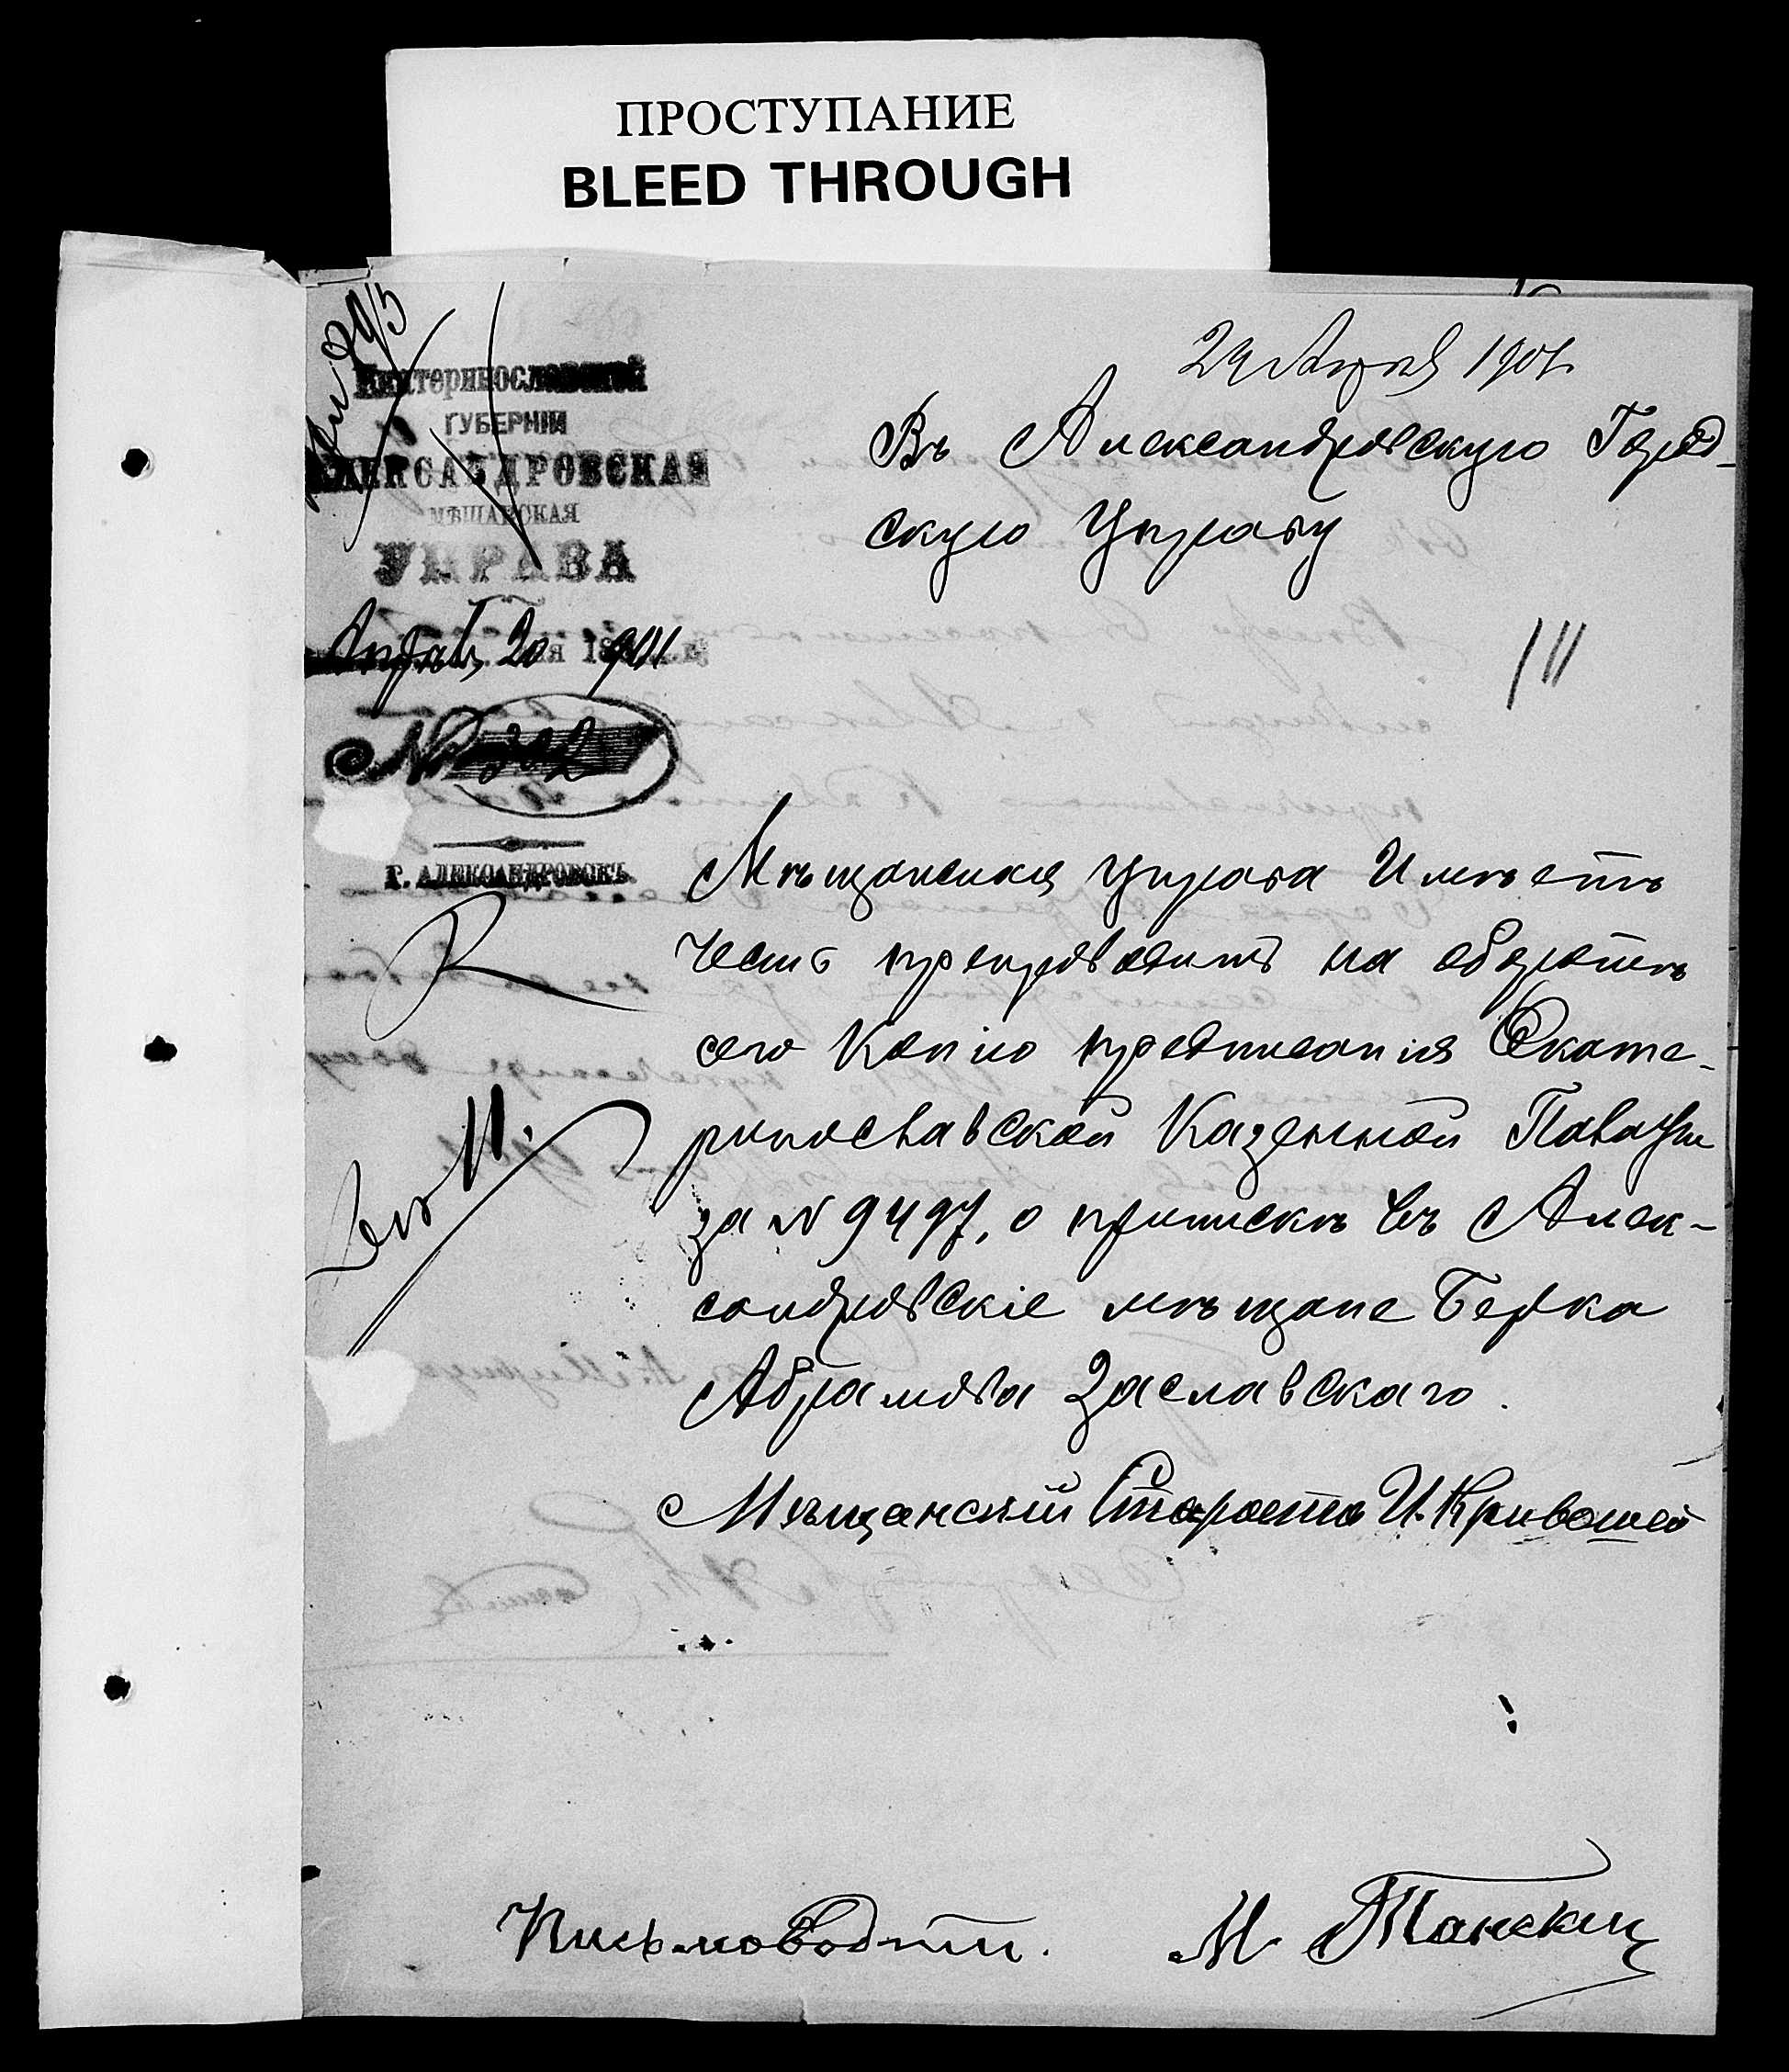 ПРОСТУПАНИЕ
BLEED THROUGH
24 Апреля 1901
Екатеринославской
ГУБЕРНІИ
АЛЕКСАНДРОВСКАЯ
МѢЩАНСКАЯ
УПРАВА
20 1901
№ 302
Г. АЛЕКСАНДРОВСКЪ.
Въ Александровскую Город-
скую Управу
Мѣщанская Управа Имѣетъ
честь препроводить на оборотѣ
сего Копію предписанія Екате-
ринославской Казенной Палаты
за № 9497, о припискѣ въ Алек-
сандровскіе мѣщане Берка
Абрамова Заславскаго.
Мѣщанскій Староста И. Кривошей
Письмоводит.
М.